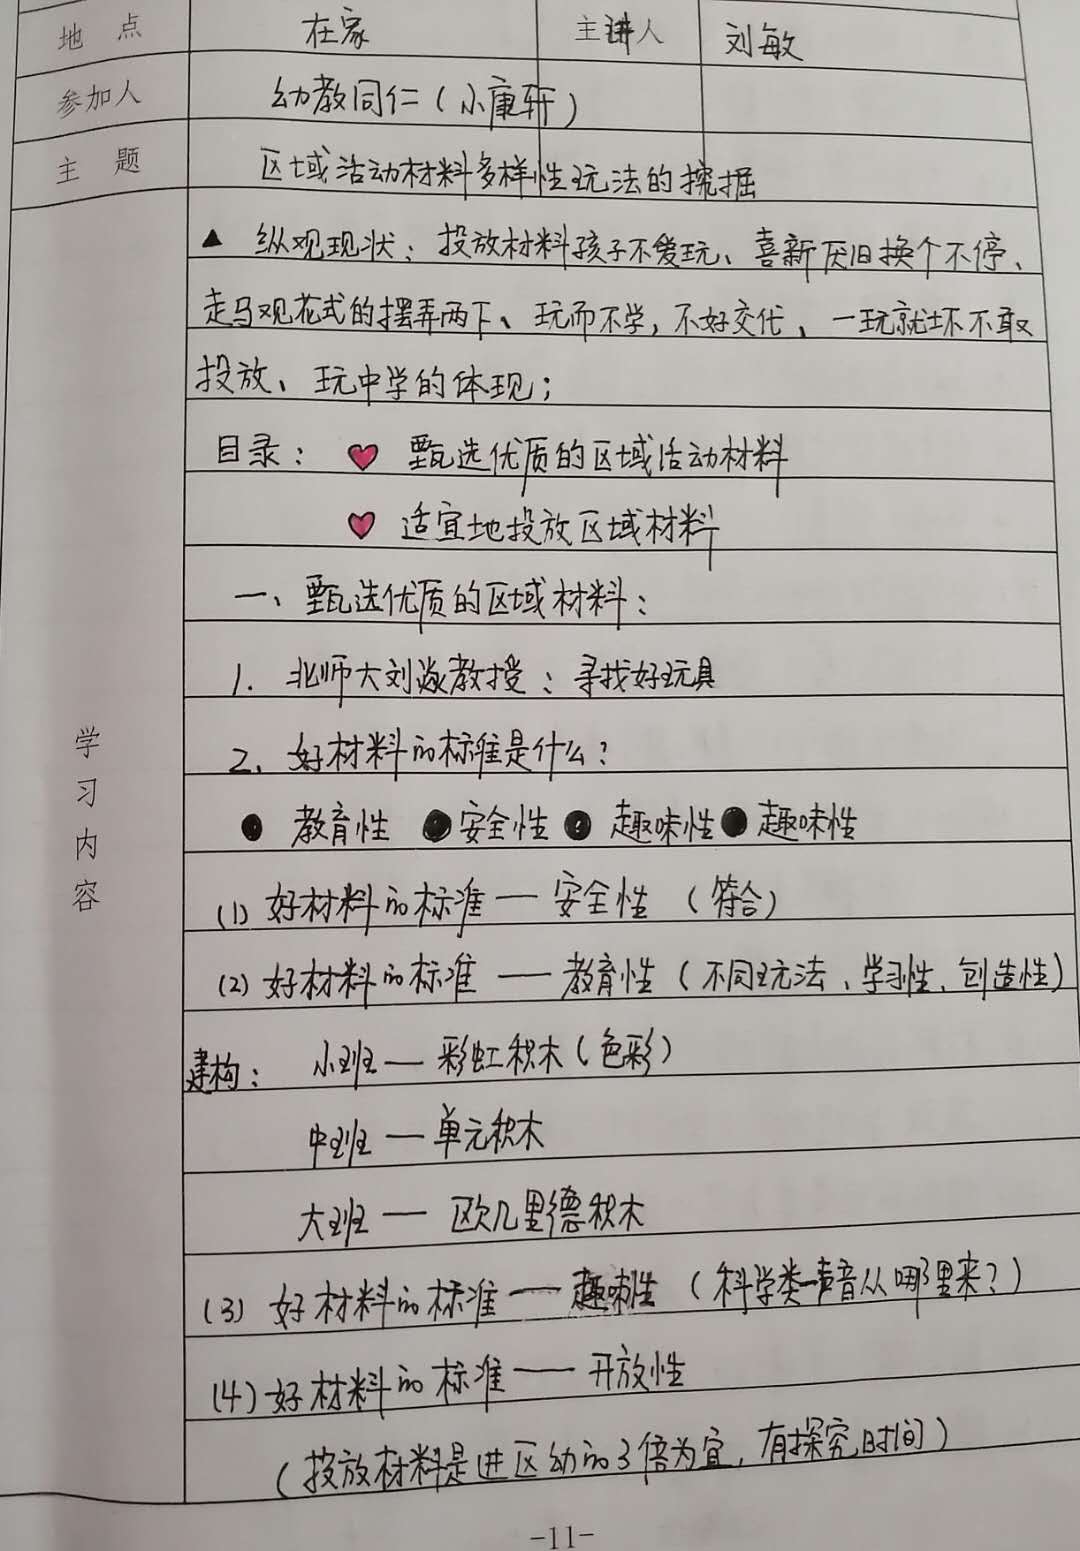 地 点 在家 主讲人 刘敏
参加人 幼教同仁（小康轩）
主 题 区域活动材料多样性玩法的挖掘
▲ 纵观现状：投放材料孩子不爱玩、喜新厌旧换个不停、
走马观花式的摆弄两下、玩而不学，不好交代、一玩就坏不敢
投放、玩中学的体现；
目录：♥ 甄选优质的区域活动材料
♥ 适宜地投放区域材料
一、甄选优质的区域材料：
1. 北师大刘焱教授：寻找好玩具
2、好材料的标准是什么？
● 教育性 ● 安全性 ● 趣味性 ● 趣味性
(1) 好材料的标准 — 安全性（符合）
(2) 好材料的标准 — 教育性（不同玩法、学习性、创造性）
建构： 小班 — 彩虹积木（色彩）
中班 — 单元积木
大班 — 欧几里德积木
(3) 好材料的标准 — 趣味性（科学类-声音从哪里来？）
(4) 好材料的标准 — 开放性
（投放材料是进区幼的3倍为宜，有探究时间）
学习内容
-11-